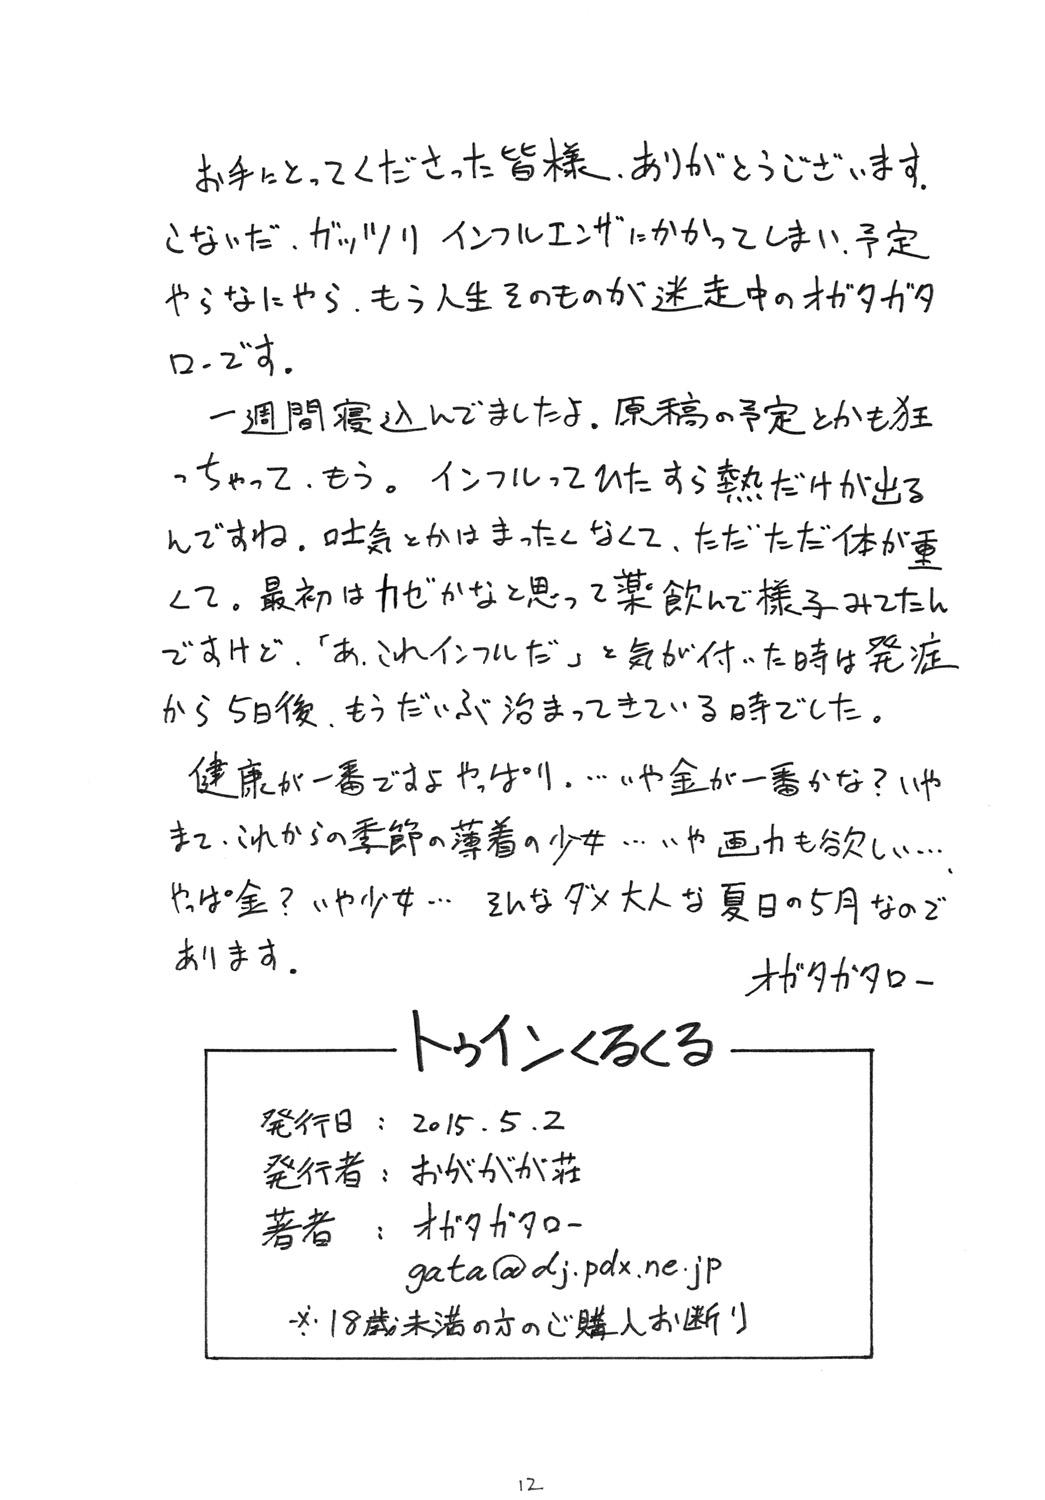 お手にとってくださった皆様、ありがとうございます。
こないだ、ガッツリ インフルエンザにかかってしまい、予定
やらなにやら、もう人生そのものが迷走中のオガタガタ
ローです。
一週間寝込んでましたよ。原稿の予定とかも狂
っちゃって、もう。インフルってひたすら熱だけが出る
んですね。吐気とかはまったくなくて、ただただ体が重
くて。最初はカゼかなと思って薬飲んで様子みてたん
ですけど、「あ、これインフルだ」と気が付いた時は発症
から5日後、もうだいぶ治まってきている時でした。
健康が一番ですよやっぱり。…いや金が一番かな？いや
まて、これからの季節の薄着の少女…いや画力も欲しい…、
やっぱ金？いや少女… そんなダメ大人な夏日の5月なので
あります。
オガタガタロー
トゥインくるくる
発行日：2015.5.2
発行者：おがががが荘
著者：オガタガタロー
gata@dj.pdx.ne.jp
※18歳未満の方のご購入お断り
12